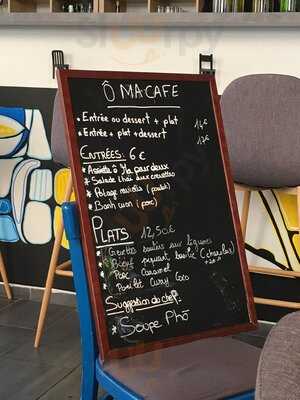 Ô MA CAFE
* Entrée ou dessert + plat 14€
* Entrée + plat + dessert 17€
ENTRÉES: 6€
* Assiette à
pour deux
* Salade thaï aux crevettes
* Potage raviolis (poulet)
* Banh cuon (porc)
PLATS 12,50€
* Crevettes sautées aux légumes
* Boeuf piquant basilic
* Porc Caramel
* Poulet Curry Coco
Suggestion du chef:
* Soupe Phô